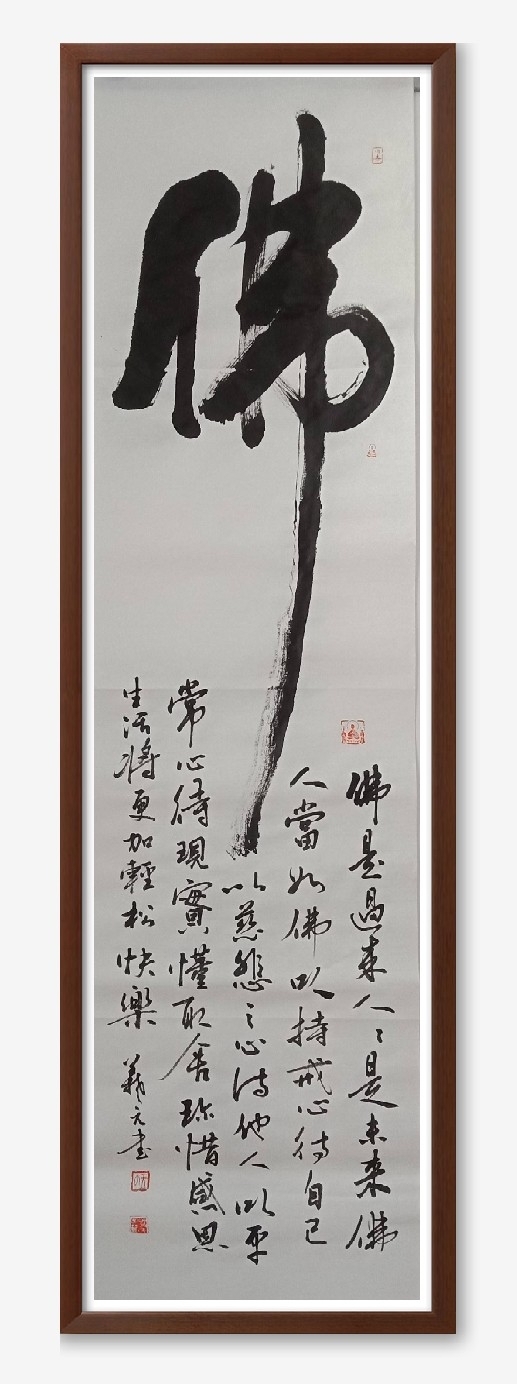 佛
佛是過来人〻是未来佛
人當如佛以持戒心待自己
以慈態之心待他人以平
常心待現實懂取舍珍惜感恩
生活將更加輕松快樂 義元书